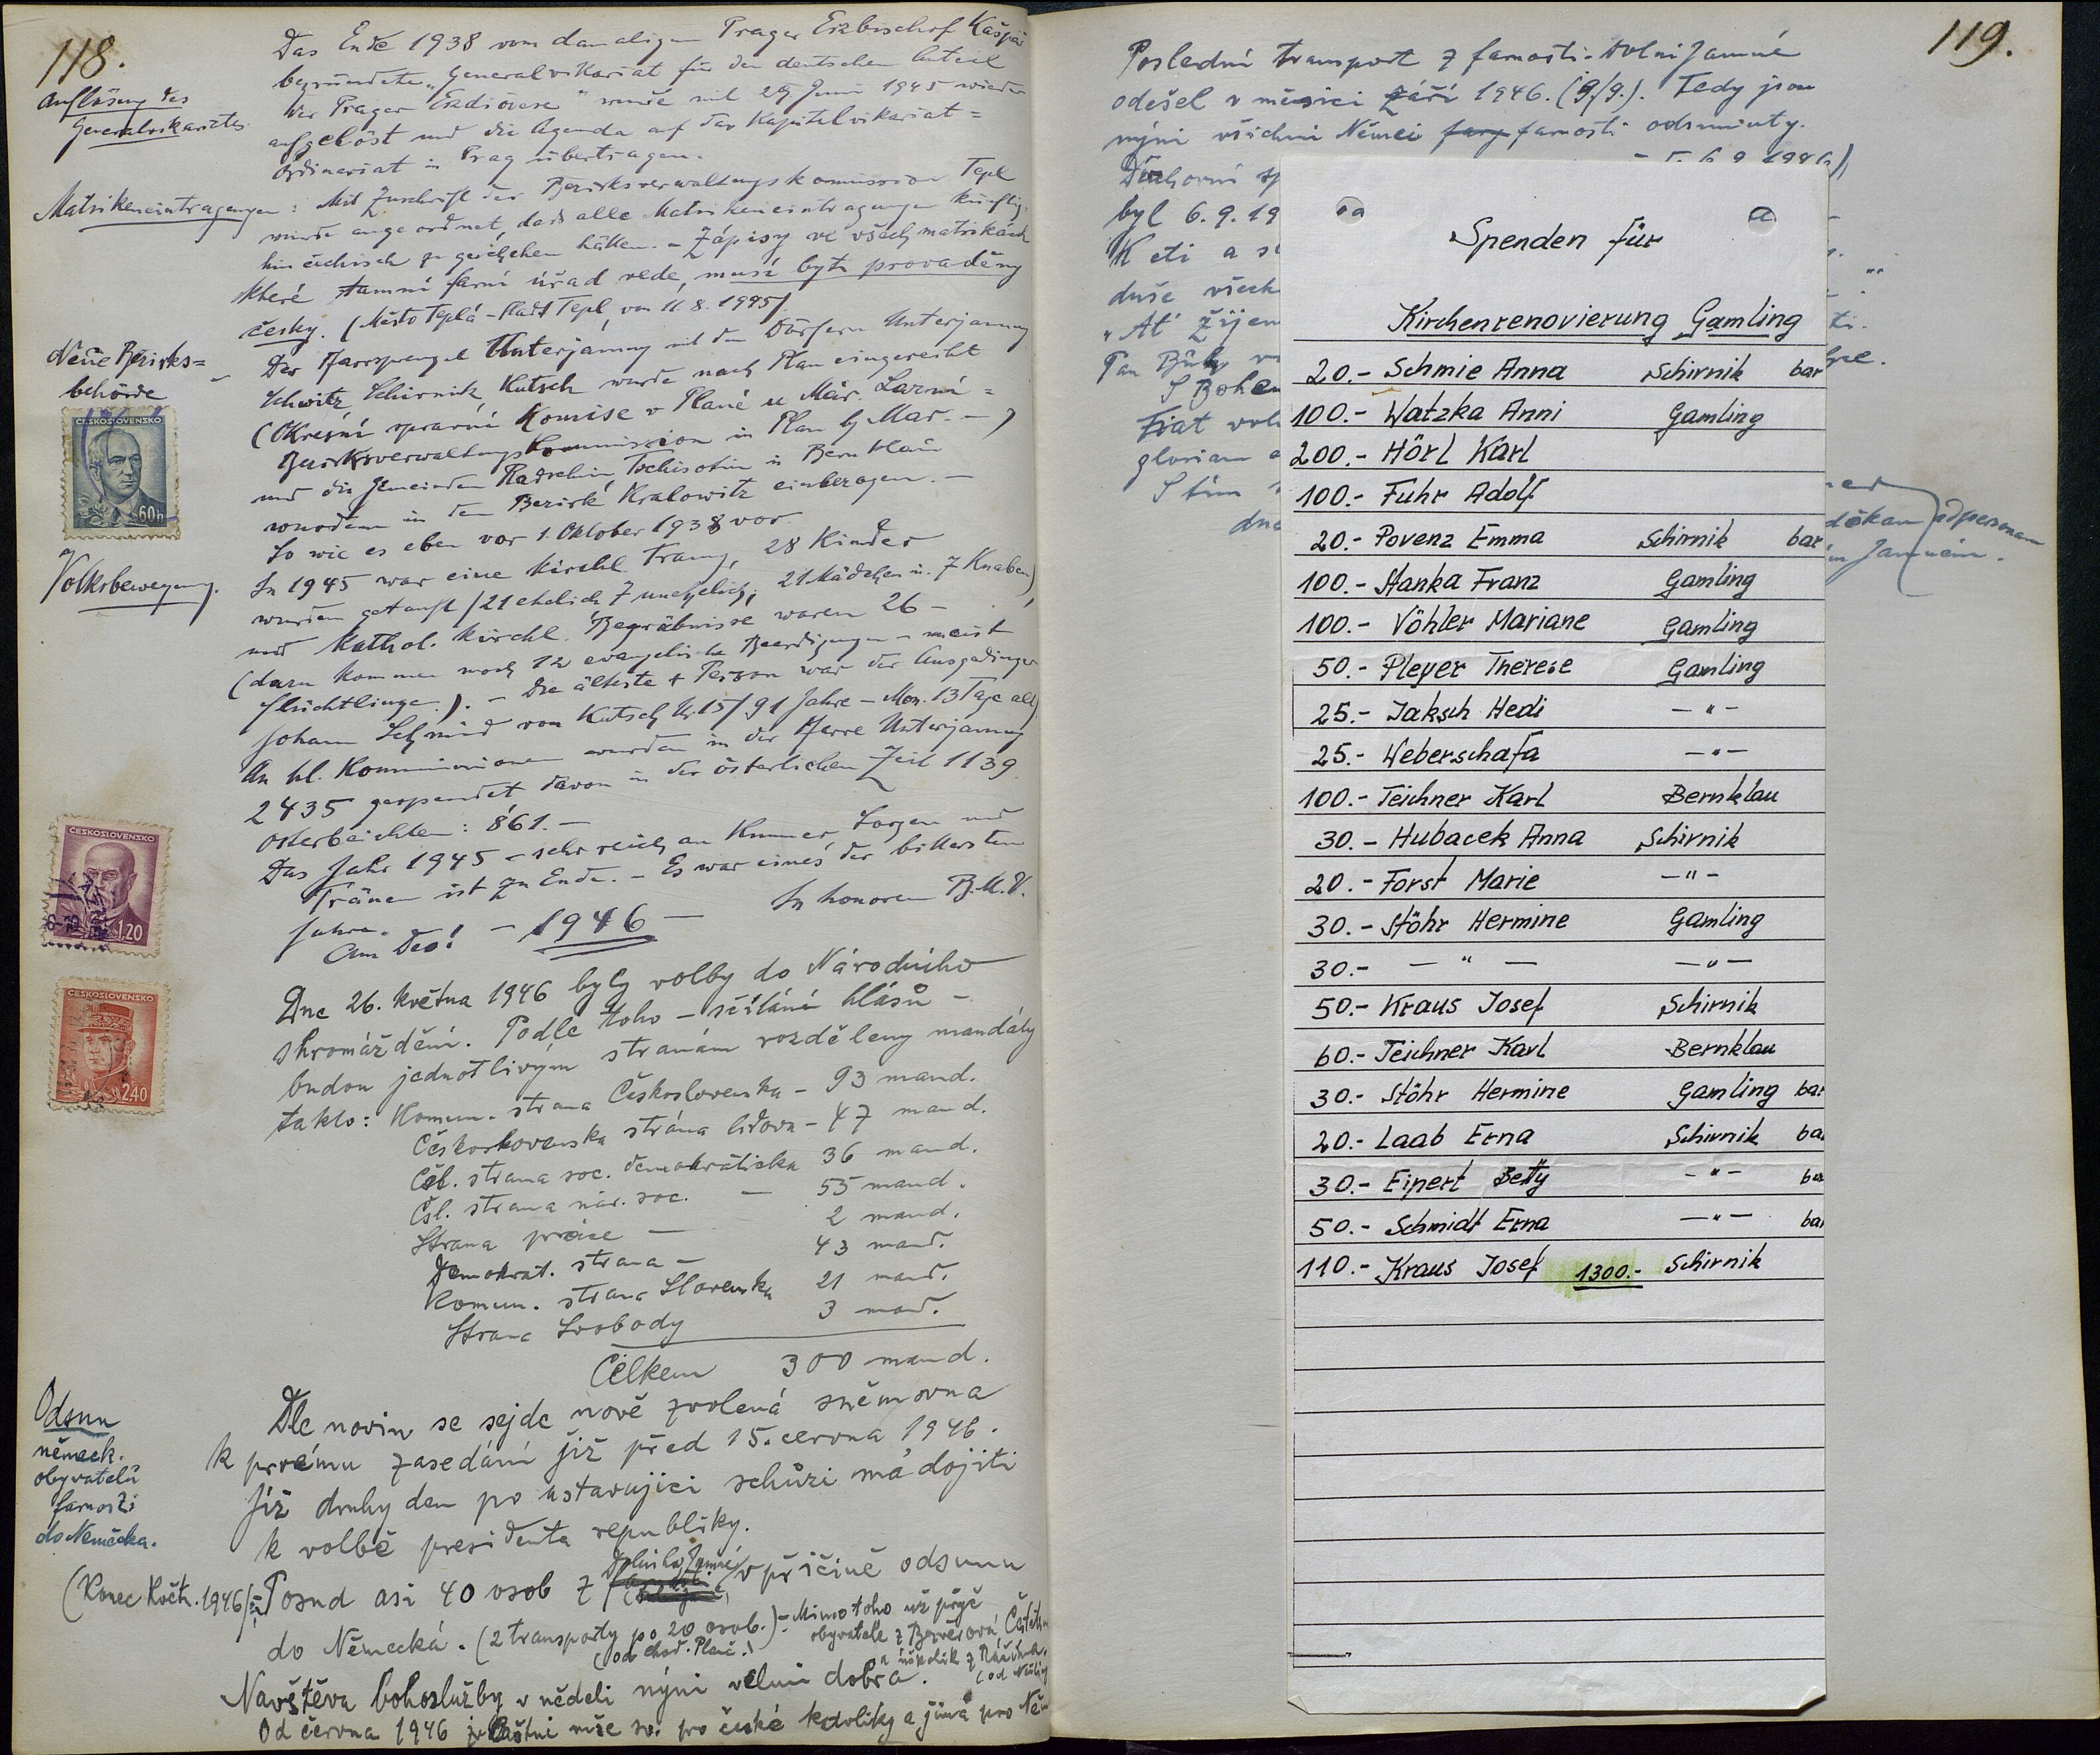 118.
Das Ende 1938 vom damaligen Prager Erzbischof Kašpar
begründete „Generalvikariat für den deutschen Anteil
der Prager Erzdiözese" wurde mit 29. Juni 1945 wieder
aufgelöst und die Agenda auf das Kapitelvikariat=
Ordinariat in Prag übertragen.
Auflösung des
Generalvikariates.
Matrikeneintragungen: Mit Zuschrift der Bezirksverwaltungskommission Tepl
wurde angeordnet, daß alle Matrikeneintragungen künftig-
hin čechisch zu geschehen hätten. - Zápisy ve všech matrikách
které tamní farní úřad vede, musí býti prováděny
česky. (Město Teplá - Stadt Tepl, von 11.8.1945)
Neue Bezirks=
behörde
Der Pfarrsprengel Unterjamny mit den Dörfern Unterjamny
Schwitz Schirnik Kutsch wurde nach Plan eingereiht
(Okresní správní Komise v Plané u Mar. Lázní=
Bezirksverwaltungskommission in Plan b/ Mar. - )
und die Gemeinden Radschin, Tschisotin u Bernklau
wurden in den Bezirk Kralowitz einbezogen. -
So wie es eben vor 1. Oktober 1938 vor
ČESKOSLOVENSKO
60h
Volksbewegung.
In 1945 war eine kirchl. Trauung, 28 Kinder
wurden getauft (21 ehelich 7 unehelich; 21 Mädchen u. 7 Knaben)
und kathol. kirchl. Begräbnisse waren 26 -
(dazu kommen noch 12 evangelische Beerdigungen - meist
Flüchtlinge). - Die älteste + Person war der Ausgedinger
Johann Schmied von Kutsch Nr. 15/ 91 Jahre - Mon. 13 Tage alt)
An hl. Kommunionen wurden in der Pfarre Unterjamny
2435 gespendet davon in der österlichen Zeit 1139
Osterbeichten: 861. -
Das Jahr 1945 - sehr reich an Kummer, Sorgen und
Tränen ist zu Ende. - Es war eines der bittersten
Jahre.
Cum Deo! - 1946 - In honorem B.M.V.
ČESKOSLOVENSKO
1.20
ČESKOSLOVENSKO
2.40
Dne 26. května 1946 byly volby do Národního
shromáždění. Podle toho - sčítání hlásů -
budou jednotlivým stranám rozděleny mandáty
takto: Komun. strana Československa - 93 mand.
Československa strana lidova - 47 mand.
Čsl. strana soc. demokratická 36 mand.
Čsl. strana nár. soc. - 55 mand.
Strana práce - 2 mand.
Demokrat. strana - 43 mand.
Komun. strana Slovenska 21 mand.
Strana Svobody 3 mand.
Celkem 300 mand.
Dle novin se sejde nově zvolená sněmovna
k prvému zasedání již před 15. cervna 1946.
Již druhy den po ustavující schůzi má dojíti
k volbě presidenta republiky.
Odsun
německ.
obyvatelů
farnosti
do Německa.
(Konec Květ. 1946)
Posud asi 40 osob z Dolního Jamné v příčině odsunu
do Německá. (2 transporty po 20 osob.) - Mimo toho už pryč
(od chod. Planě.) obyvatelé z
a několik z
Navštěva bohoslužby v neděli nyní velmi dobra.
Od června 1946 zvláštní mše sv. pro české katoliky a jiná pro Něm
119.
Poslední transport z farnosti Dolni Jamné
odešel v měsíci září 1946. (9./9.). Tedy jsou
nyní všichni Němci fary farnosti odsunuty.
Duchovní sp
byl 6.9.19
K cti a sl
duše všech
„Ať žijem
Pan Bůh
S Bohem
Fiat vol
gloriam
S tím
dne
děkan ad personam
Jamném.
Spenden für
Kirchenrenovierung Gamling
20.- Schmie Anna Schirnik bar
100.- Watzka Anni Gamling
200.- Hörl Karl
100.- Fuhr Adolf
20.- Povenz Emma Schirnik bar
100.- Hanka Franz Gamling
100.- Vöhler Mariane Gamling
50.- Pleyer Therese Gamling
25.- Jaksch Hedi -"-
25.- Weberschafa -"-
100.- Teichner Karl Bernklau
30.- Hubacek Anna Schirnik
20.- Forst Marie -"-
30.- Stöhr Hermine Gamling
30.- - " - -"-
50.- Kraus Josef Schirnik
60.- Teichner Karl Bernklau
30.- Stöhr Hermine Gamling bar
20.- Laab Erna Schirnik ba
30.- Eipert Betty -"- ba
50.- Schmidt Erna -"- bar
110.- Kraus Josef 1300.- Schirnik